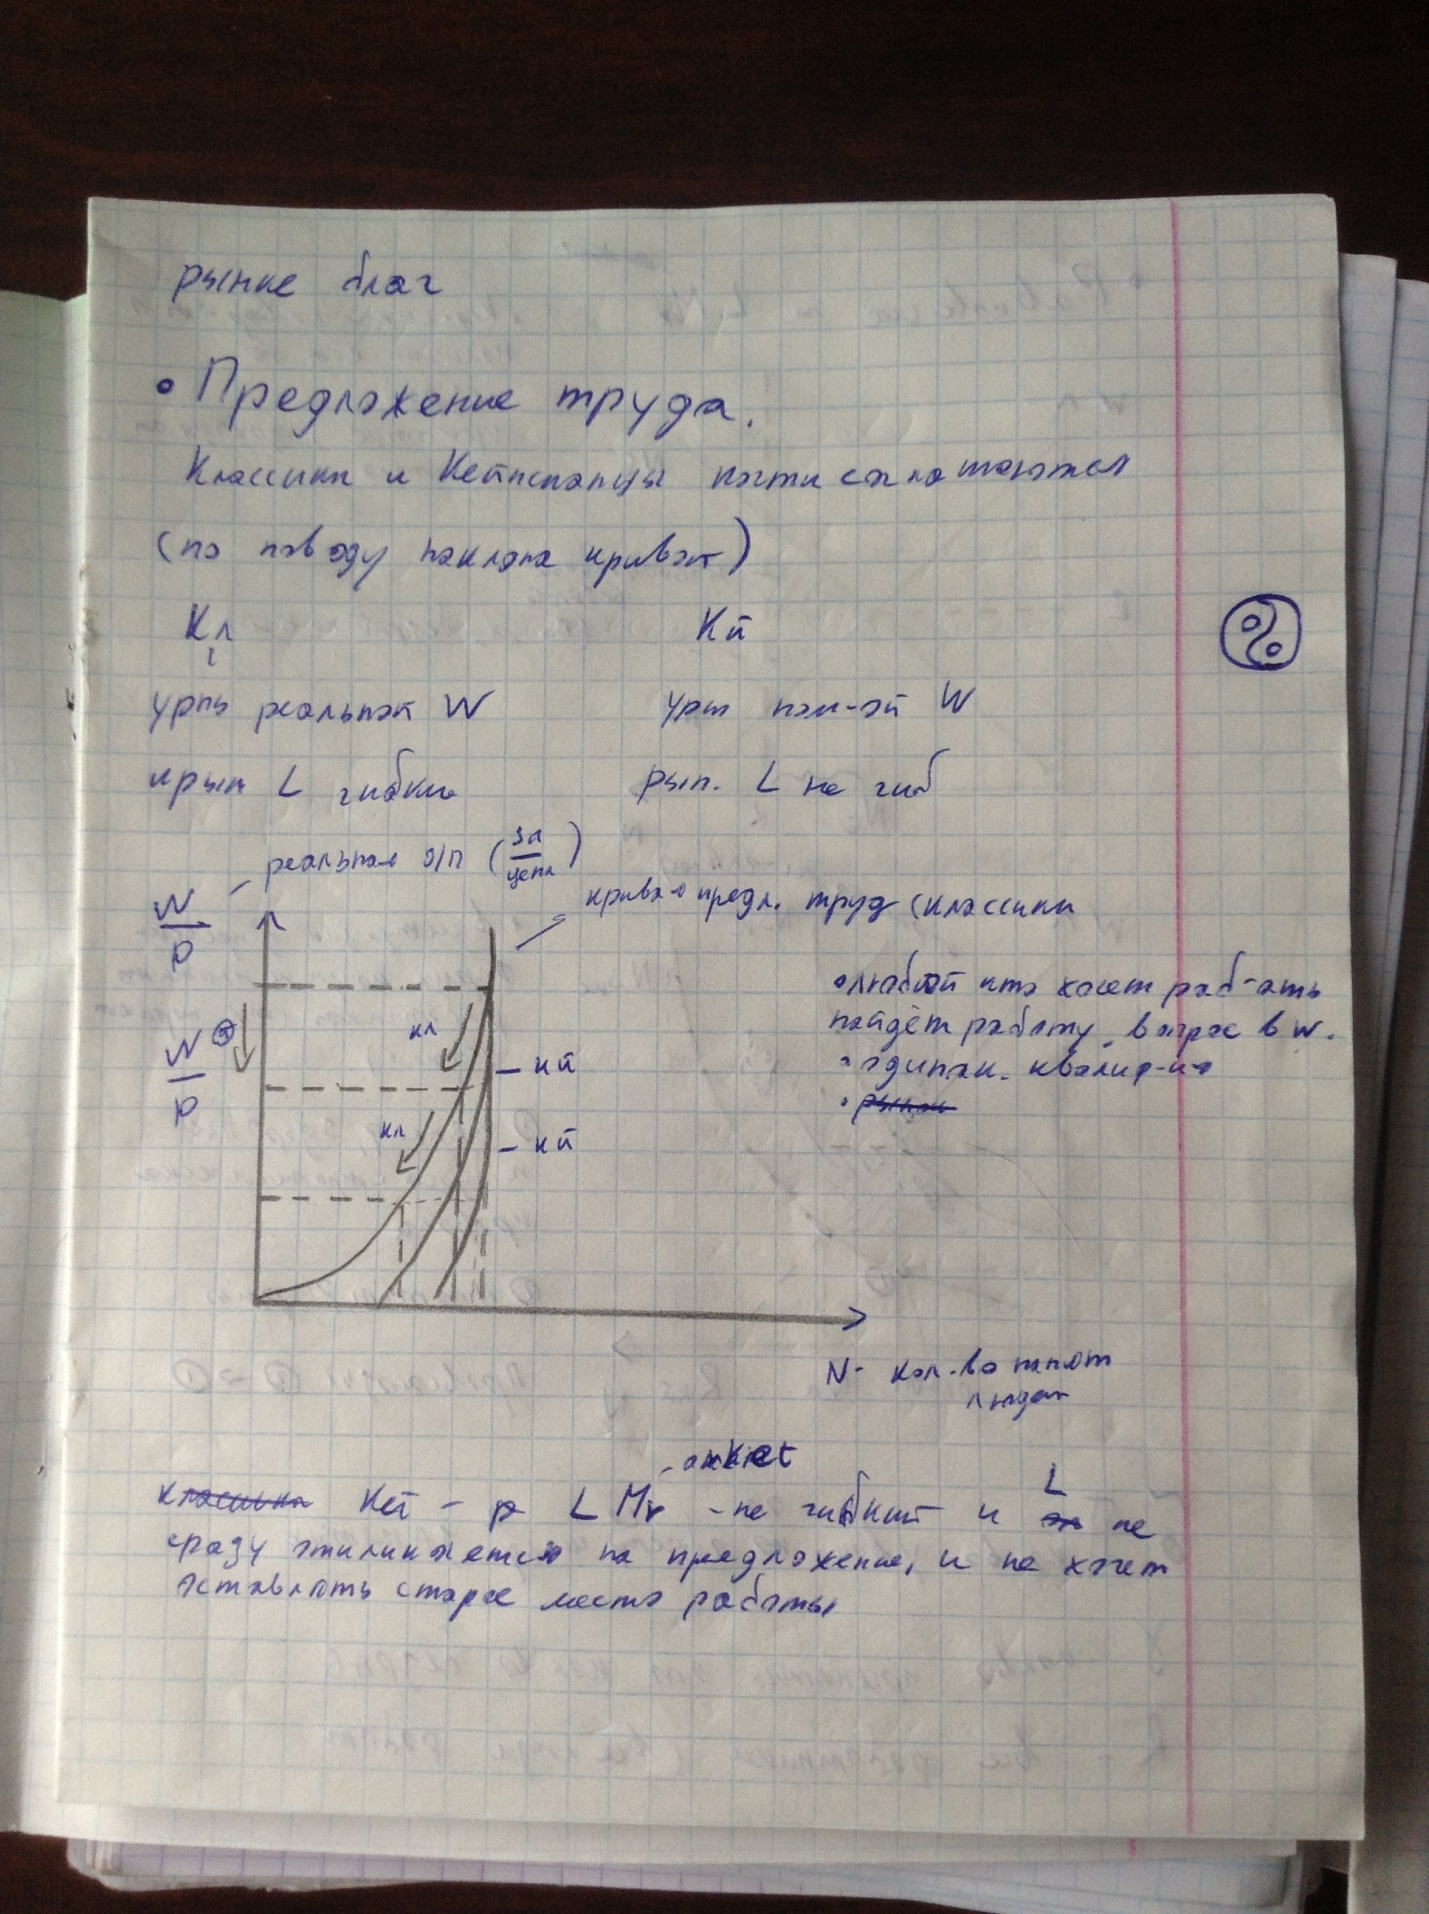 рынке благ
• Предложение труда.
Классики и Кейнсианцы почти соглашаются
(по поводу наклона кривой)
Кл
Кй
урнь реальной W
урн ном-ой W
и рын L гибкий
рын. L не гиб
реальная з/п (зп/цена)
кривая предл. труд (классики
W/P
• любой кто хочет раб-ать
найдёт работу, вопрос в W.
• одинак. квалиф-ия
• рынок
W/P
кл
кй
кл
кй
N - кол-во
людей
arket
классики Кей - р LMr - не гибкий и L не
сразу откликается на предложение, и не хочет
оставлять старое место работы